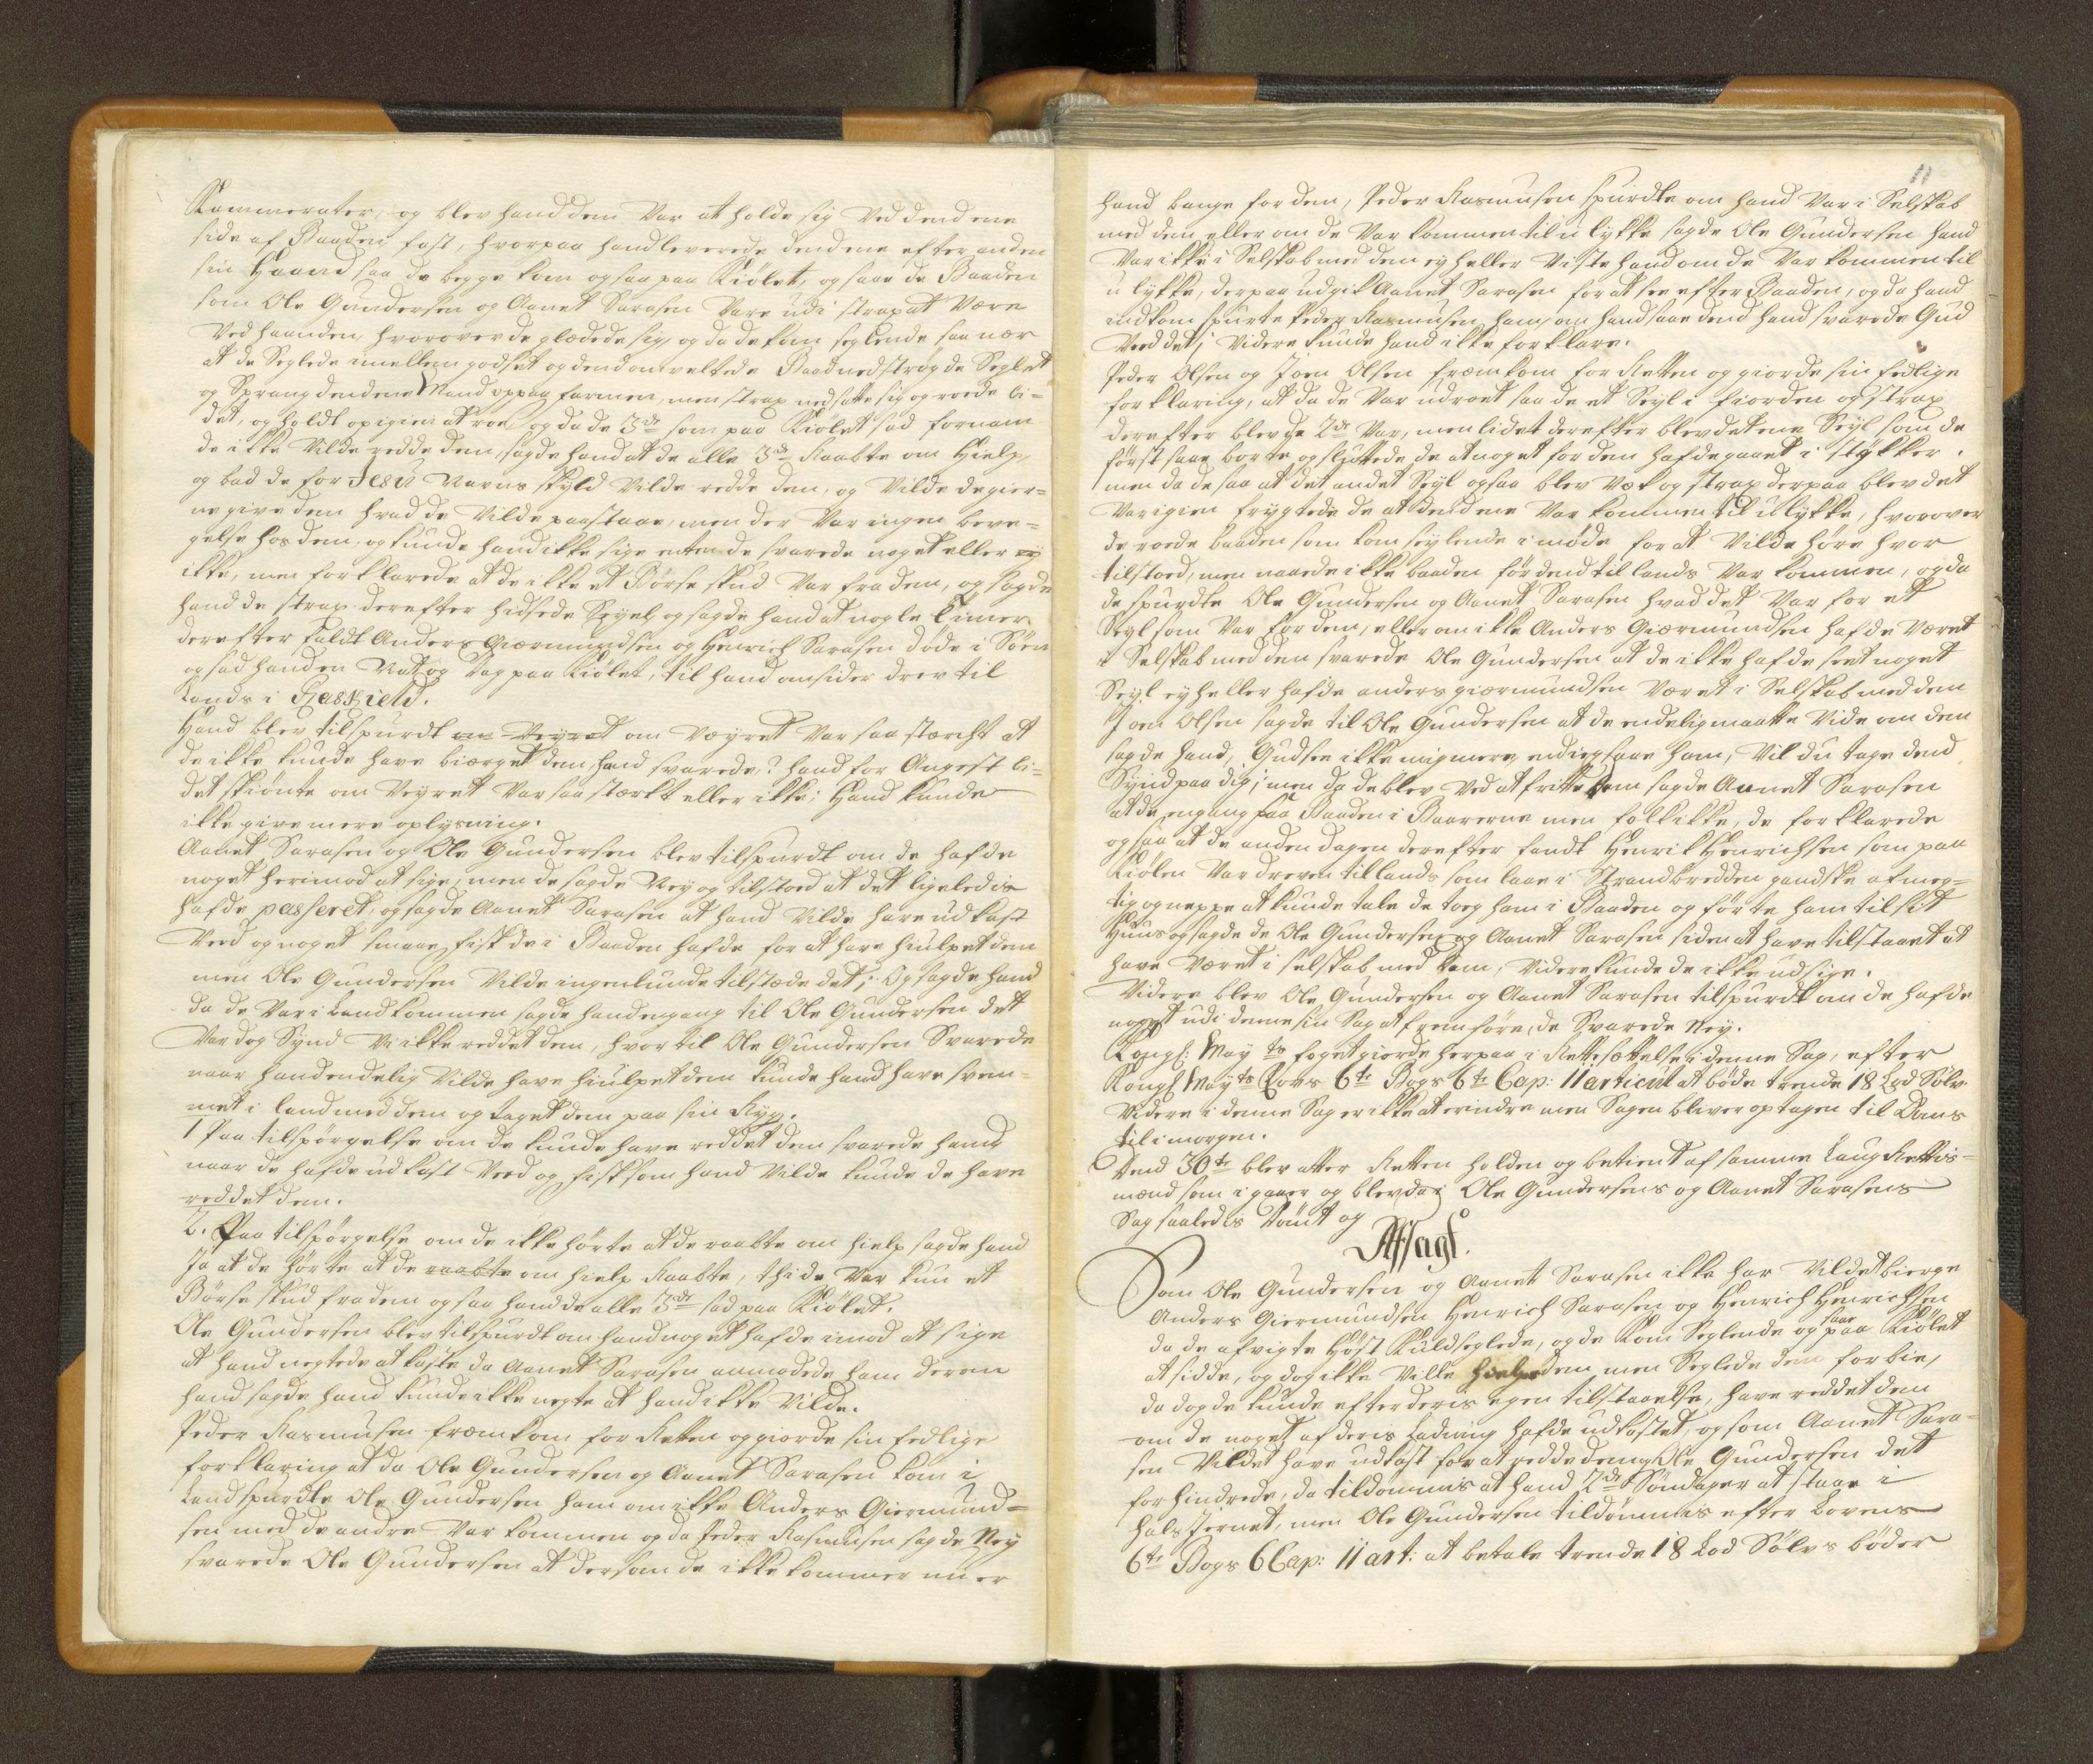 Kammerater, og blev hand dem Var at holde sig Ved dend ene
side af Baaden fast, hvorpaa hand leverede dend ene efter anden
sin Haand saa de begge kom ogsaa paa Kiölet, og saae de Baaden
som Ole Gundersen og Aanet Sarasen Vare udi strax at Være
Ved haanden, hvorover de glædede sig, og da de kom seglende saa nær
at de Seglede imellem godset og dend omveltede Baad nedströg de Seglet
og Sprang dend ene Mand op paa farmen, men strax nedsatte sig og roede li-
det, og holdt op igien at roe, og da de 3de som paa Kiölet sad fornam
de ikke Vilde redde dem, sagde hand at de alle 3de Raabte om Hielp,
og bad de for Jesu Navns skyld Vilde redde dem, og Vilde de gier-
ne give dem hvad de Vilde paastaae, men der Var ingen beve-
gelse hos dem, og kunde hand ikke sige enten de svarede noget eller ey
ikke, men forklarede at de ikke et Börse skud Var fra dem, og sagde
hand de strax derefter hidsede Seyel, og sagde hand at nogle Timer
derefter faldt Anders Giærmundsen og Henrich Sarasen döde i Söen
og sad hand en Natt og Dag paa Kiölet, til hand omsider drev til
Lands i
Hand blev tilspurdt om Veyret om Væyret Var saa stærcht at
de ikke kunde have biærget dem, hand svarede: hand for Angest li-
det skiönte om Veyret Var saa stærkt eller ikke; Hand kunde
ikke give mere oplysning.
Aanet Sarasen og Ole Gundersen blev tilspurdt om de hafde
noget herimod at sige, men de sagde Ney og tilstoed at det ligeledis
hafde passeret, og sagde Aanet Sarasen at hand Vilde have udkast
Veed og noget smaae fisk de i Baaden hafde for at have hiulpet dem
men Ole Gundersen Vilde ingenlunde tilstæde det; Og sagde hand
da de Var i Land kommen sagde hand engang til Ole Gundersen det
Var dog Synd Vi ikke reddet dem, hvor til Ole Gundersen Svarede
naar hand endelig Vilde have hiulpet dem kunde hand have svem-
met i land med dem og taget dem paa sin Ryg.
1 Paa tilspörgelse om de kunde have reddet dem svarede hand
naar de hafde udkast Veed og fisk som hand Vilde kunde de have
reddet dem.
2. Paa tilspörgelse om de ikke hörte at de raabte om hielp sagde hand
Ja at de hörte at de raabte om hielp Raabte, thi de Var kun et
Börse skud fra dem og saae hand de alle 3de sad paa Kiölet.
Ole Gundersen blev tilspurdt om hand noget hafde imod at sige
at hand negtede at kaste da Aanet Sarasen anmodede ham derom
hand sagde hand kunde ikke negte at hand ikke Vilde.
Peder Rasmusen fræmkom for Retten og giorde sin Eedlige
forklaring at da Ole Gundersen og Aanet Sarasen kom i
Land spurdte Ole Gundersen ham om ikke Anders Giermund-
sen med de andre Var kommen og da Peder Rasmusen sagde Ney
svarede Ole Gundersen at dersom de ikke kommer nu er
11
hand bange for dem, Peder Rasmusen spurdte om hand Var i Selskab
med dem eller om de Var kommen til u lykke sagde Ole Gundersen hand
Var ikke i Selskab med dem ey heller Viste hand om de Var kommen til
u lykke, derpaa udgik Aanet Sarasen for at see efter Baaden, og da hand
indkom spurte Peder Rasmusen ham, om hand saae dend hand svarede Gud
Veed det; Videre kunde hand ikke forklare.
Peder Olsen og Joen Olsen fræmkom for Retten og giorde sin Eedlige
forklaring, at da de Var udroet saa de et Seyl i fiorden og strax
derefter blev de 2de Var, men lidet derefter blev det ene Seyl som de
först saae borte og sluttede de at noget for dem hafde gaaet i stykker,
men da de saa at det andet Seyl ogsaa blev Væk og strax derpaa blev det
Var igien frygtede de at dend ene Var kommen til ulykke, hvorover
de roede baaden som kom seylende i möde for at Vilde höre hvor
tilstoed, men naaede ikke baaden för dend til lands Var kommen, og da
de spurdte Ole Gundersen og Aanet Sarasen hvad det Var for et
Seyl som Var for dem, eller om ikke Anders Giærmundsen hafde Været
i Selskab med dem svarede Ole Gundersen at de ikke hafde seet noget
Seyl ey heller hafde anders giærmundsen Været i Selskab med dem
Joen Olsen sagde til Ole Gundersen at de endelig maatte Vide om dem
sagde hand, Gud see ikke mig mere end ieg saae ham, Vil du tage dend
Synd paa dig; men da de blev Ved at fritte dem sagde Aanet Sarasen
at de engang saa Baaden i Baarerne men folk ikke, de forklarede
og saa at de anden dagen derefter fandt Henrik Henrichsen som paa
Kiölen Var dreven til lands som laae i Strandbredden gandske afmeg-
tig og neppe at kunde tale de tog ham i Baaden og förte ham til sit
Huus og sagde de Ole Gundersen og Aanet Sarasen siden at have tilstaaet at
have Været i selskab med dem, Videre kunde de ikke udsige.
Videre blev Ole Gundersen og Aanet Sarasen tilspurdt om de hafde
noget udi denne sin Sag at fremföre, de Svarede Ney.
Kongl: May ts foget giorde herpaa i Rettesættelse i denne Sag, efter
Kongl May ts Lovs 6te Bogs 6te Cap: 11 articul at böde trende 18 Lod Sölv
Videre i denne Sag er ikke at erindre men Sagen bliver optagen til Doms
til i morgen.
Dend 30te blev atter Retten holden og betient af samme Laug Rettis-
mænd som i gaaer og blev da i Ole Gundersens og Aanet Sarasens
Sag saaledis dömt og
Affsagt.
Som Ole Gundersen og Aanet Sarasen ikke har Vildet bierge
Anders Giermundsen Henrich Sarasen og Henrich Henrichsen
da de afvigte Höst Kuldseglede, og de kom Seglende og saae paa Kiölet
at sidde, og dog ikke Ville hielpe dem men Seglede dem forbie,
da dog de kunde efter deris egen tilstaaelse, have reddet dem
om de noget af deris Ladning hafde udkastet, og som Aanet Sara-
sen Vildet have udkast for at redde dem, Ole Gundersen det
forhindrede, da tildömmis at hand 2de Söndager at staae i
halsJernet, men Ole Gundersen tildömmis efter Lovens
6te Bogs 6 Cap: 11 art: at betale trende 18 Lod Sölvs böder